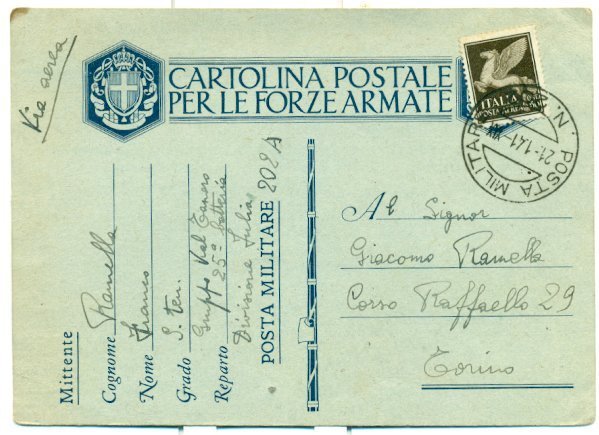 Via aerea
CARTOLINA POSTALE
PER LE FORZE ARMATE
ITALIA
POSTA AEREA
POSTA MILITARE N.
21-1.41-XIX
Mittente
Cognome Ramella
Nome Franco
Grado S. Ten.
Gruppo Val Tanaro
Reparto 25ª batteria
Divisione Julia
POSTA MILITARE 202 A
Al Signor
Giacomo Ramella
Corso Raffaello 29
Torino